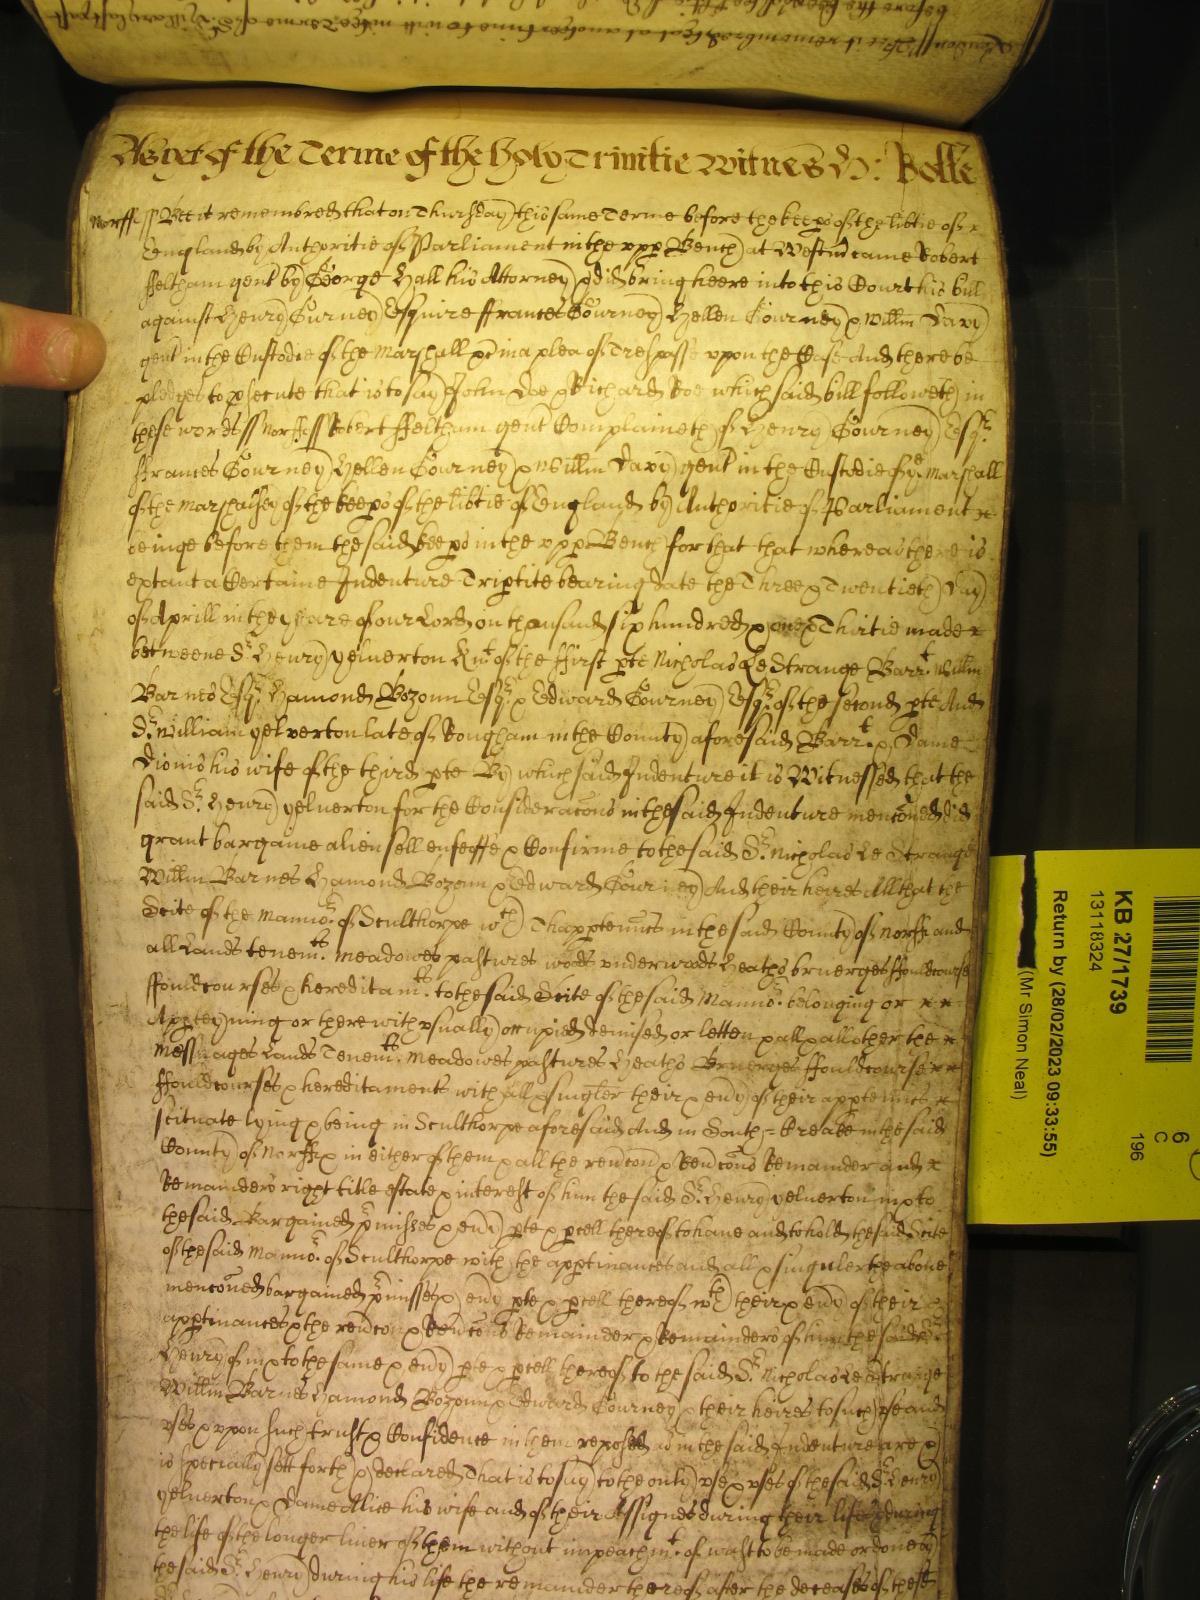 As yet of the Terme of the holy Trinitie Witnes H: Rolle
Norff ss Bee it remembred that on Thursday this same Terme before the keeps of the libtie of
England by Authoritie of Parliament in the vpp Bench at Westm came Robert
ffeltham gent by George Hall his Attorney & did bring heere into this Court his bill
against Henry Gurney Esquire ffrances Gourney Hellen Gourney & Willm Davy
gent in the Custodie of the Marshall &c in a plea of Trespasse vpon the Case And there be
pledges to psecute that is to say John Doe & Richard Roe which said bill followeth in
these words ss Norff ss Robert ffeltham gent Complaineth of Henry Gourney Esqr.
ffrances Gourney Hellen Gourney & Willm Davy gent in the Custodie of ye Marshall
of the Marshalsey of the keeps of the libtie of England by Authoritie of Parliament
beinge before them the said keeps in the vpp Bench for that that whereas there is
extant a Certaine Indenture Triptite bearing date the Three & Twentieth Day
of Aprill in the yeare of our Lord on thousand six hundred & one & Thirtie made
betweene Sr. Henry yelverton Knt of the ffirst pte Nicholas Le Strange Barrt. Willm
Barnes Esqr. Hamond Bozoun Esqr. & Edward Gourney Esqr. of the second pte And
Sr. William yelverton late of Rougham in the County aforesaid Barrt. & Dame
Dionis his wife of the third pte By which said Indenture it is Witnessed that the
said Sr. Henry yelverton for the Consideracons in the said Indenture menconed did
grant bargaine alien sell enfeoffe & Confirme to the said Sr. Nicholas Le Strange
Willm Barnes Hamond Bozoun & Edward Gourney And their heires All that the
Scite of the Mannor. of Sculthorpe wth Thapptenncs in the said County of Norff and
all Lands tenemts. meadowes pastures woods vnderwoods Heaths bruerges ffouldcourse
ffouldcourses & hereditamts. to the said Scite of the said Mannor. belonging or
Appteyning or therewith vsually occupied demised or letten & all & all other the
Messuages Lands Tenemts. meadowes pastures Heaths Bruerges ffouldcourse
ffouldcourses & hereditaments with all & singler their & evy of their apptenncs
scituate lying & being in Sculthorpe aforesaid And in South = Creake in the said
County of Norff & in either of them & all the revcon & Revcons Remainder and
Remainders right title estate & interest of him the said Sr. Henry yelverton in & to
the said Bargained pmisses & evy pte & pcell thereof to have and to hold the said Scite
of the said Mannor. of Sculthorpe with the apptinances and all & singuler the above
menconed bargained pmisses & evy pte & pcell thereof wth their & evy of their
apptinances & the revcon & Revcons Remainder & Remainders of him the said Sr.
Henry of in & to the same & evy pte & pcell thereof to the said Sr. Nicholas Le Strange
Willm Barnes Hamond Bozoun & Edward Gourney & their heires to such vse and
vses & vpon such trust & Confidence in them reposed as in the said Indenture are
is specially sett forth & declared That is to say to the only vse & vses of the said Sr. Henry
yelverton & Dame Alice his wife and of their Assignes during their lifes & during
the life of the longer liver of them without impeachmt. of wast to be made or done by
the said Sr. Henry during his life the remainder thereof after the deceases of these
KB 27/1739
13118324
Return by (28/02/2023 09:33:55)
(Mr Simon Neal)
6
C
196